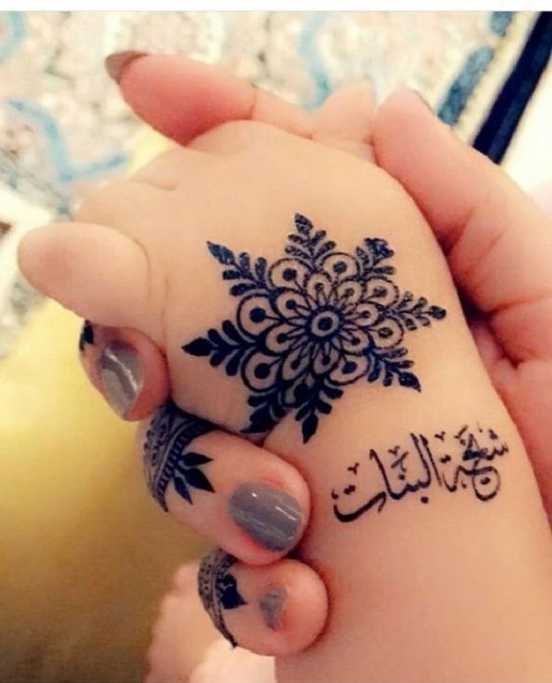 شيخة البنات